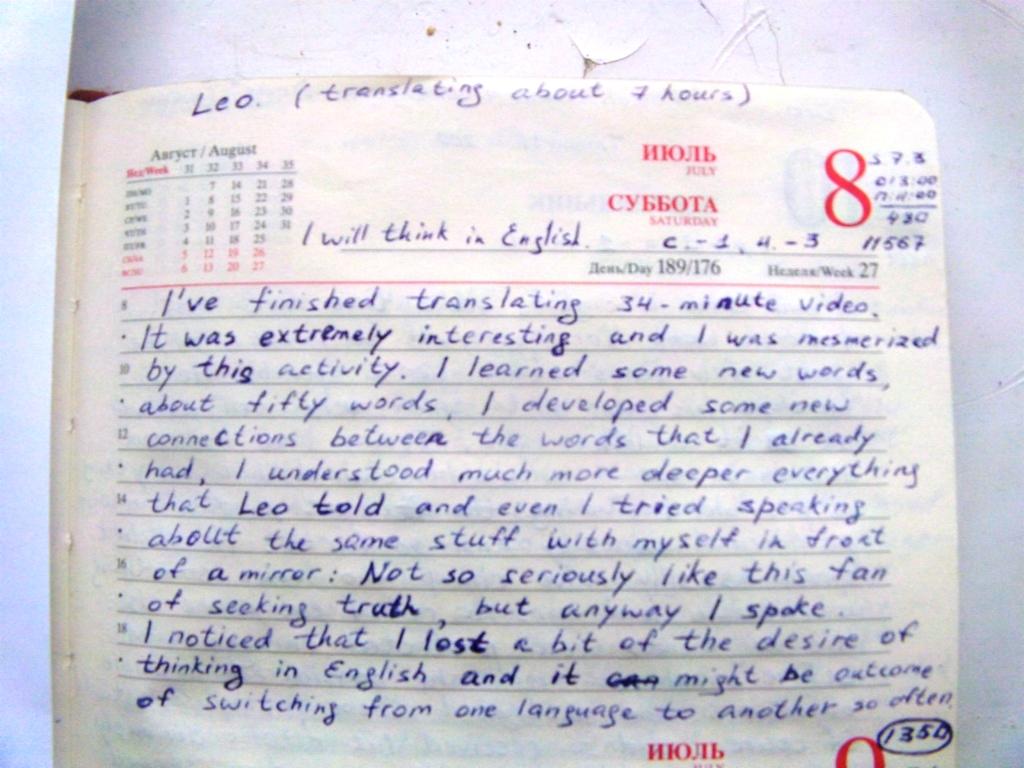 Leo. (translating about 7 hours)
Август / August
Нед/Week 31 32 33 34 35
7 14 21 28
1 8 15 22 29
2 9 16 23 30
3 10 17 24 31
4 11 18 25
5 12 19 26
6 13 20 27
ИЮЛЬ
JULY
СУББОТА
SATURDAY
8
13:00
11:00
480
I will think in English. c. - 1, ч. - 3 11567
День/Day 189/176 Неделя/Week 27
8 I've finished translating 34 - minute video.
It was extremely interesting and I was mesmerized
10 by this activity. I learned some new words,
about fifty words, I developed some new
12 connections between the words that I already
had, I understood much more deeper everything
14 that Leo told and even I tried speaking
about the same stuff with myself in front
16 of a mirror: Not so seriously like this fan
of seeking truth, but anyway I spoke.
18 I noticed that I lost a bit of the desire of
thinking in English and it can might be outcome
of switching from one language to another so often.
ИЮЛЬ